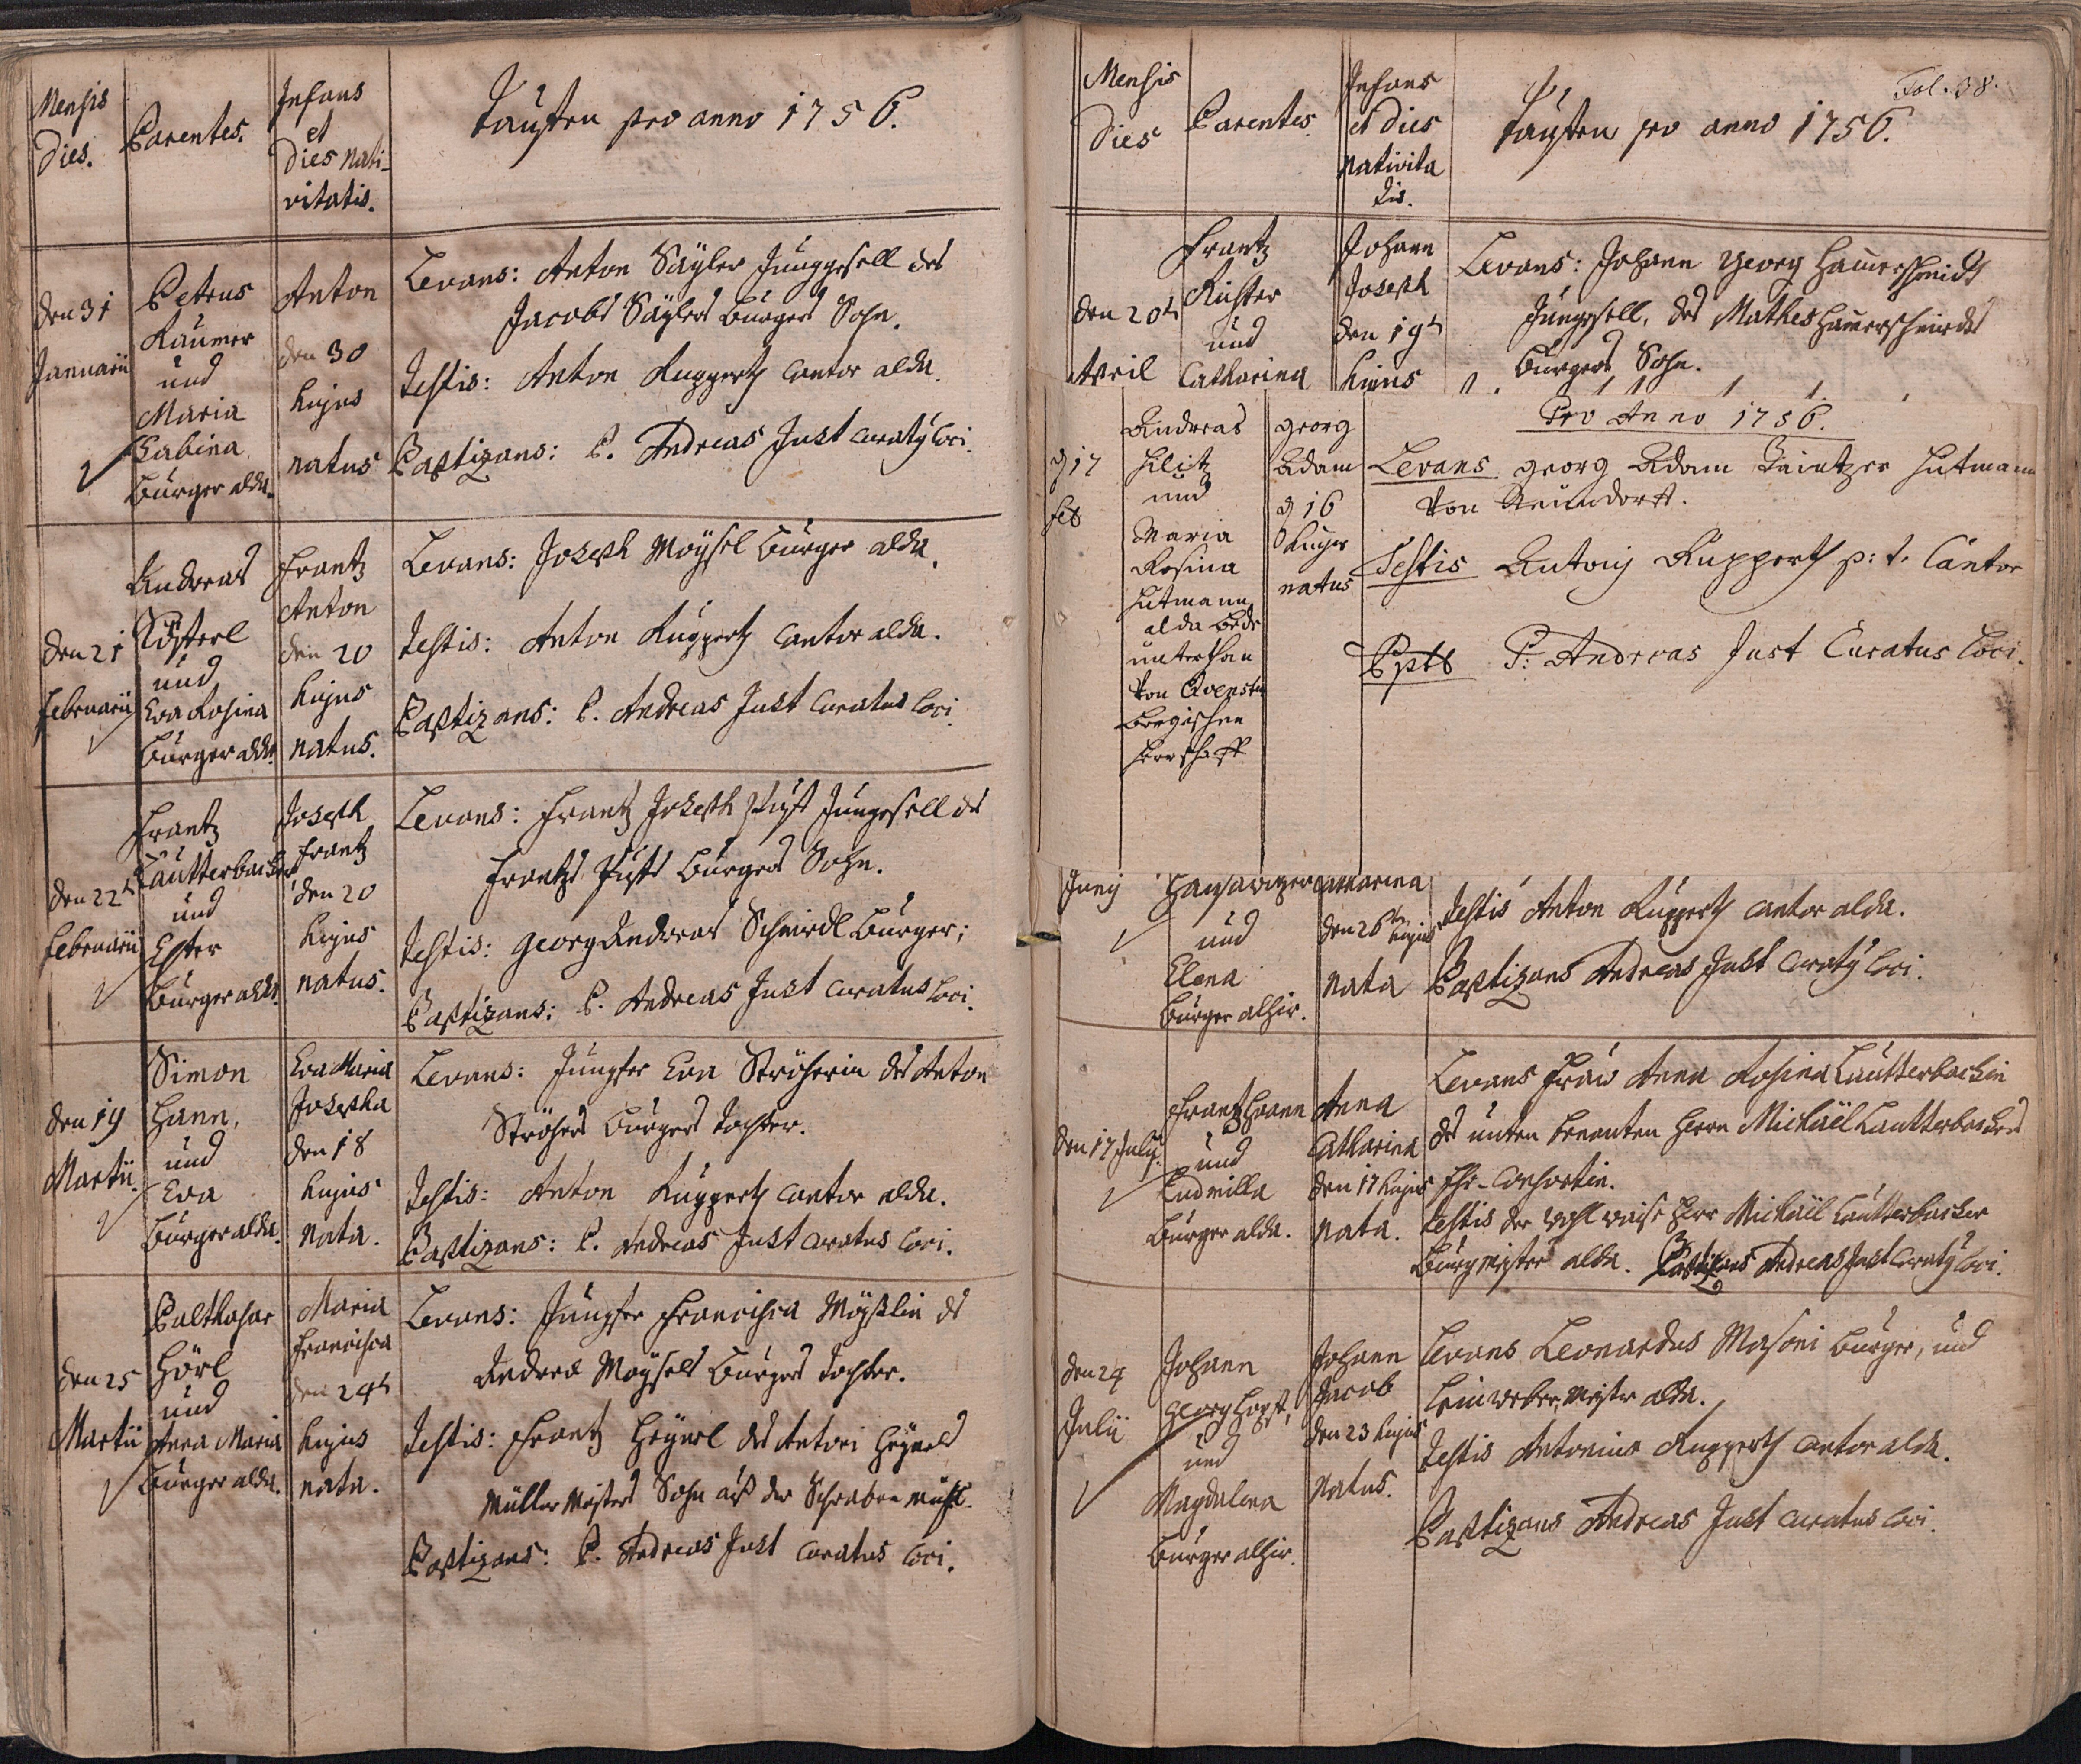 Mensis
Dies.
Parentes.
Infans
et
Dies nati-
vitatis.
Tauffen pro anno 1756.
den 31
Januarii
Petrus
Raumer
und
Maria
Sabina
Burger alda.
Anton
den 30
hujus
natus
Levans: Anton Säyler Junggesell des
Jacobs Säylers Burgers Sohn.
Testis: Anton Ruppertz Cantor alda.
Baptizans: P. Andreas Just Curaty loci.
den 21
Februarii
Andreas
und
Eva Rosina
Burger alda.
Frantz
Anton
den 20
hujus
natus.
Levans: Joseph Moysel Burger alda.
Testis: Anton Ruppertz Cantor alda.
Baptizans: P. Andreas Just Curatus loci.
den 22ten
Februarii
Frantz
Lautterbacher
und
Ester
Burger alda.
Joseph
Frantz
den 20
hujus
natus.
Levans: Frantz Joseph Junggesell des
Frantz Burgers Sohn.
Testis: Georg Andreas Schmidl Burger;
Baptizans: P. Andreas Just Curatus loci.
den 19
Martii.
Simon
Hann,
und
Eva
Burger alda.
Eva Maria
Josepha
den 18
hujus
nata.
Levans: Jungfer Eva Ströherin des Anton
Ströhers Burgers Tochter.
Testis: Anton Ruppertz Cantor alda.
Baptizans: P. Andreas Just Curatus loci.
den 25
Martii
Balthasar
Hörl
und
Anna Maria
Burger alda.
Maria
Francisca
den 24ten
hujus
nata.
Levans: Jungfer Francisca Möyßlin des
Andrea Moysels Burgers Tochter.
Testis: Frantz Heynel des Antoni Heynels
Müller Meisters Sohn auß der Schwaben mühl.
Baptizans: P. Andreas Just Curatus loci.
Mensis
Dies
Parentes
Infans
et Dies
nativita
tis.
Tauffen pro anno 1756.
Fol. 38.
den 20ten
April
Frantz
Richter
und
Catharina
Johann
Joseph
den 19ten
hujus
Levans: Johann Georg Hamerschmidt
Junggesell, des Mathes Hamerschmidts
Burgers Sohn.
Pro Anno 1756.
d 17
feb
Andreas
Hilitz
und
Maria
Rosina
Hutmann
alda
unterthan
von
bergischen
Herrschafft
Georg
Adam
d 16
hujus
natus
Levans Georg Adam Hutmann
von Neundorff.
Testis Antonj Ruppertz p: t. Cantor
Bpts P: Andreas Just Curatus loci.
Junij
und
Elena
Burger alhir.
Catharina
den 26ten hujus
nata
Testis Anton Ruppertz Cantor alda.
Baptizans Andreas Just Curaty loci.
den 17 Julij
Frantz Hann
und
Ludmilla
Burger alda.
Anna
Catharina
den 17 hujus
nata.
Levans Frau Anna Rosina Lautterbachin
des unten benanten Herrn Michaël Lautterbachers
Ehr-Consortin.
Testis der wohl weise Herr Michaël Lautterbacher
Burgmeister alda. Baptizans Andreas Just Curaty loci.
den 24
Julii
Johann
Georg Hopf,
und
Magdalena
Burger alhir.
Johann
Jacob
den 23 hujus
natus.
Levans Leonardus Masoni Burger, und
Leinweber Meister alda.
Testis Antonius Ruppertz Cantor alda.
Baptizans Andreas Just Curatus loci.